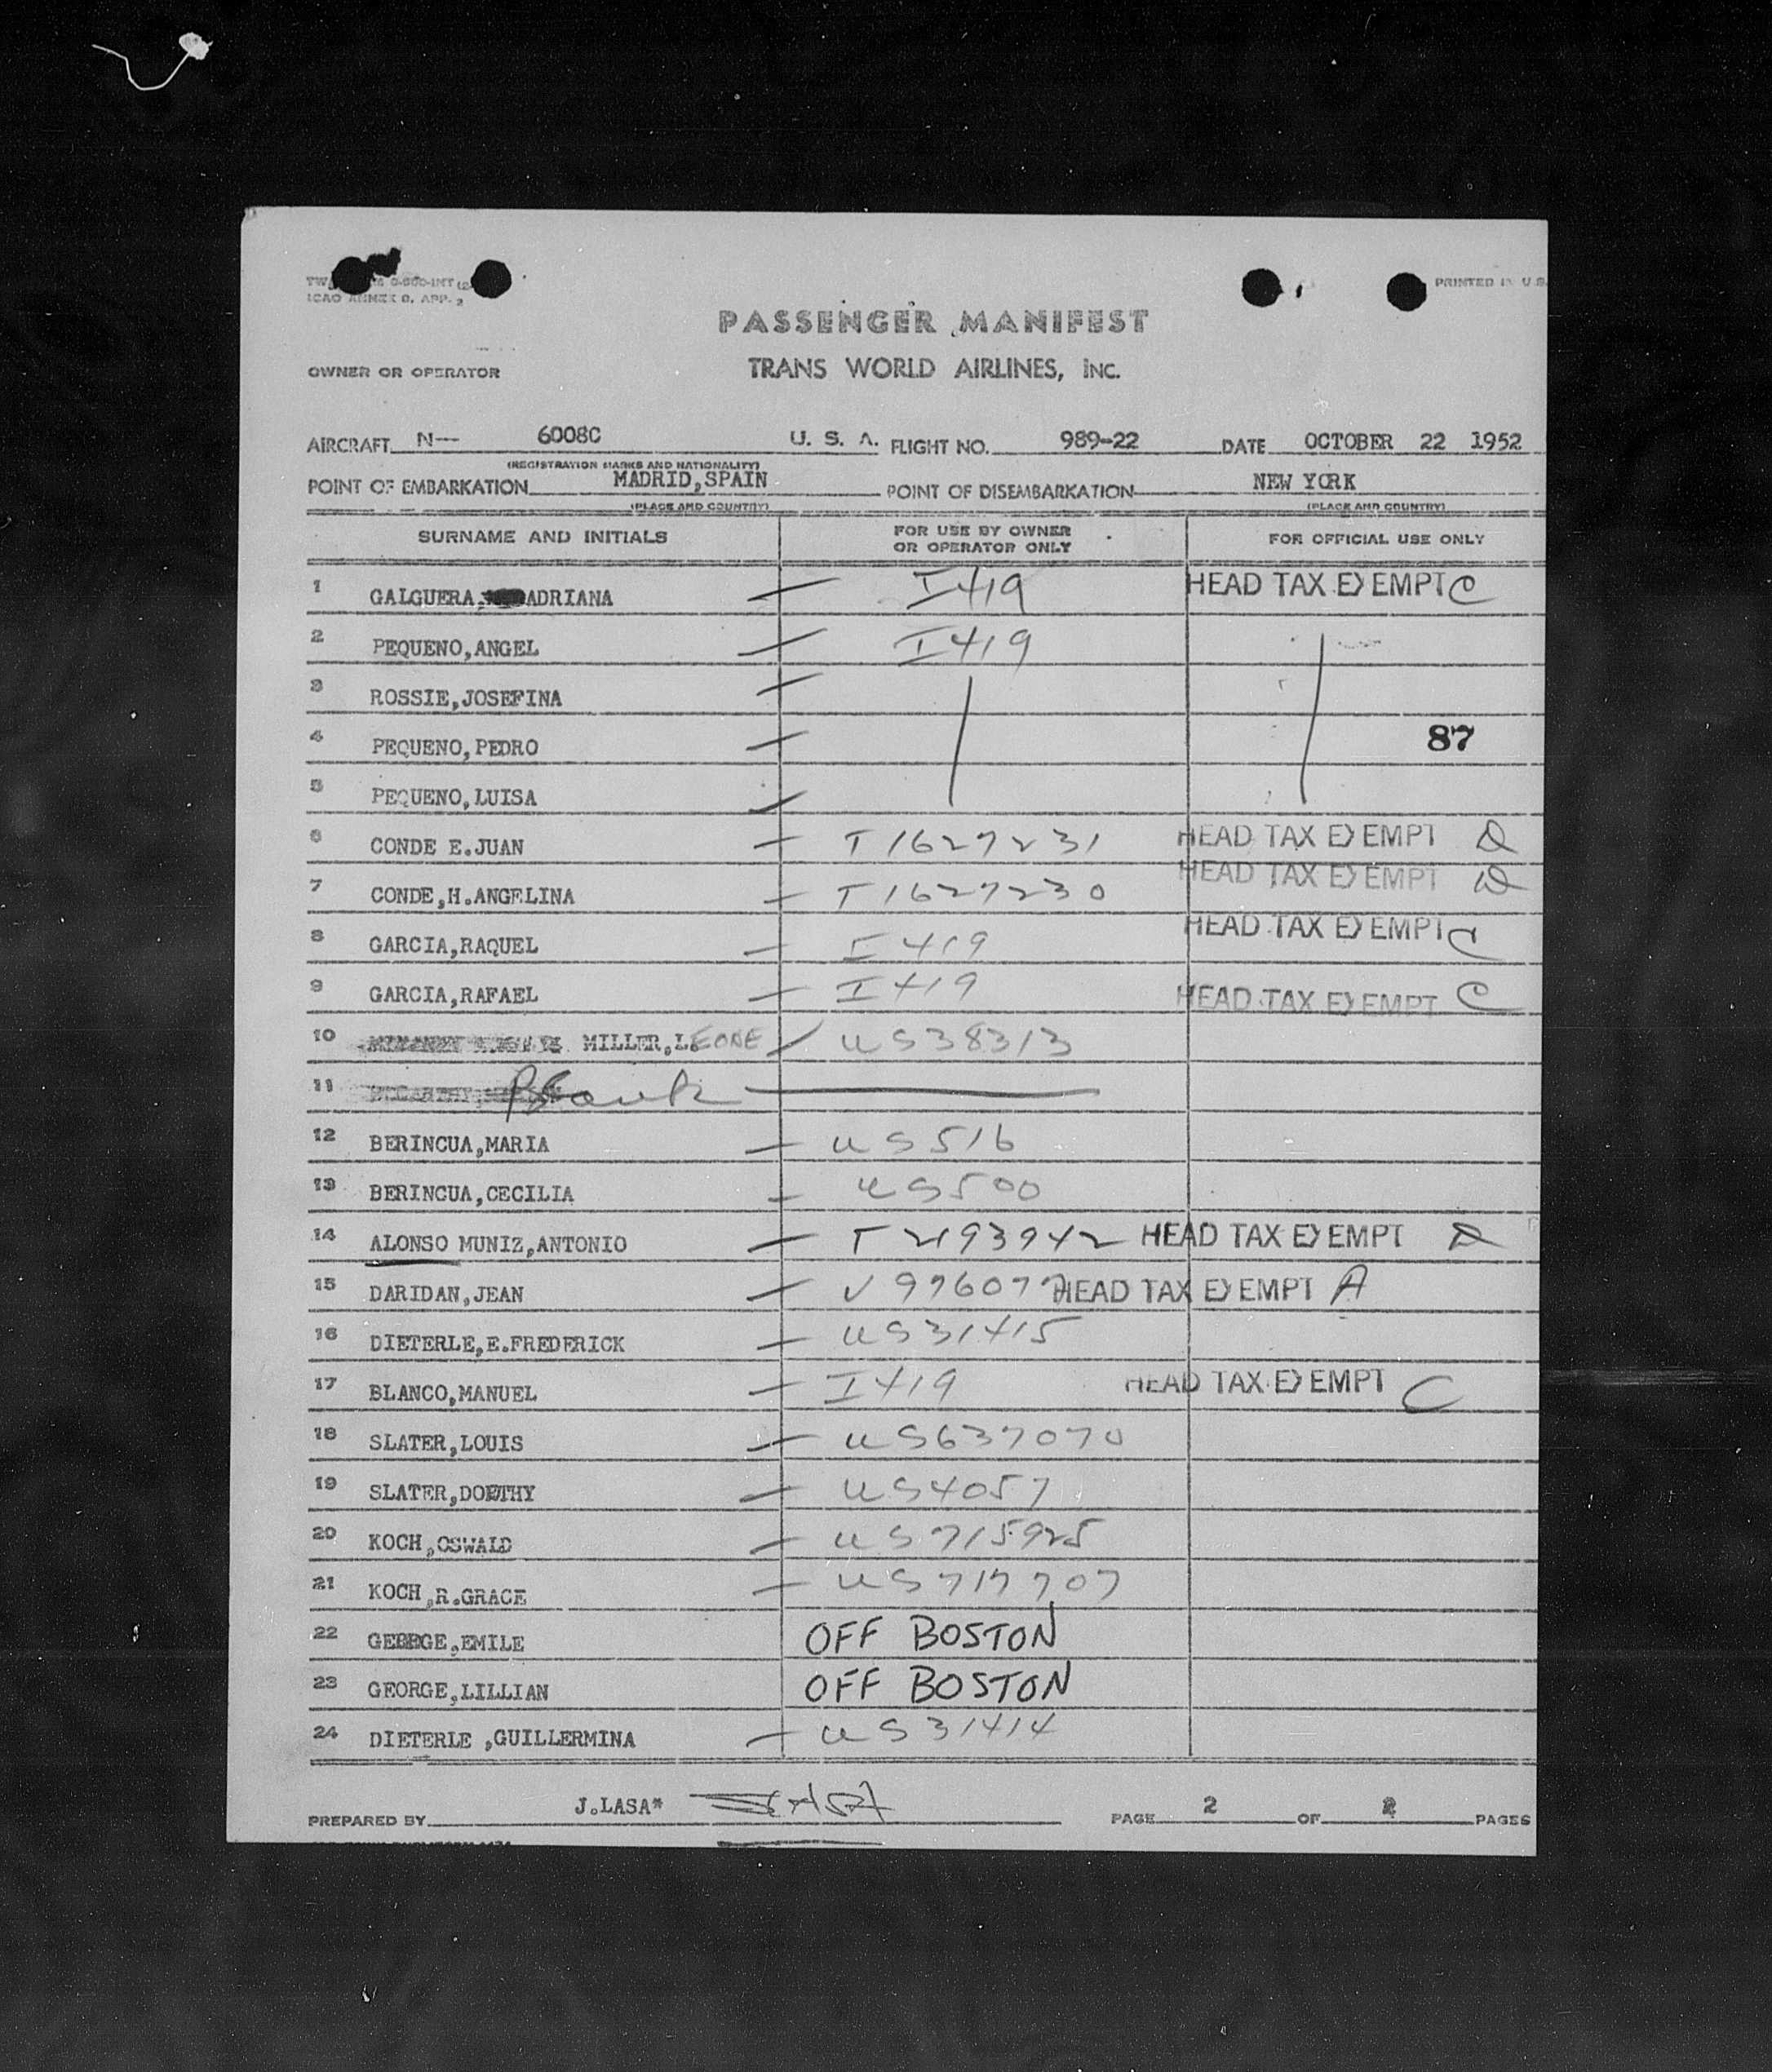 ICAO ANNEX 9. APP.
PRINTED IN U.S.
PASSENGER MANIFEST
OWNER OR OPERATOR TRANS WORLD AIRLINES, INC.
AIRCRAFT N-- 6008C U. S. A. FLIGHT NO. 989-22 DATE OCTOBER 22 1952
(REGISTRATION MARKS AND NATIONALITY)
POINT OF EMBARKATION MADRID,SPAIN POINT OF DISEMBARKATION NEW YORK
(PLACE AND COUNTRY) (PLACE AND COUNTRY)
SURNAME AND INITIALS FOR USE BY OWNER OR OPERATOR ONLY FOR OFFICIAL USE ONLY
1 GALGUERA, ADRIANA — I419 HEAD TAX EXEMPT C
2 PEQUENO,ANGEL — I419
3 ROSSIE,JOSEFINA —
4 PEQUENO,PEDRO — 87
5 PEQUENO,LUISA —
6 CONDE E.JUAN — T1627231 HEAD TAX EXEMPT
7 CONDE,H.ANGELINA — T1627230 HEAD TAX EXEMPT
8 GARCIA,RAQUEL — I419 HEAD TAX EXEMPT C
9 GARCIA,RAFAEL — I419 HEAD TAX EXEMPT C
10 MILLER,LEONE / US38313
11 Blank —
12 BERINCUA,MARIA — US516
13 BERINCUA,CECILIA — US500
14 ALONSO MUNIZ,ANTONIO — T2193942 HEAD TAX EXEMPT
15 DARIDAN,JEAN — HEAD TAX EXEMPT A
16 DIETERLE,E.FREDERICK — US31415
17 BLANCO,MANUEL — I419 HEAD TAX EXEMPT C
18 SLATER,LOUIS — US637070
19 SLATER,DORTHY — US4057
20 KOCH,OSWALD — US715925
21 KOCH,R.GRACE — US717707
22 GEORGE,EMILE OFF BOSTON
23 GEORGE,LILLIAN OFF BOSTON
24 DIETERLE ,GUILLERMINA — US31414
PREPARED BY J.LASA* PAGE 2 OF 2 PAGES